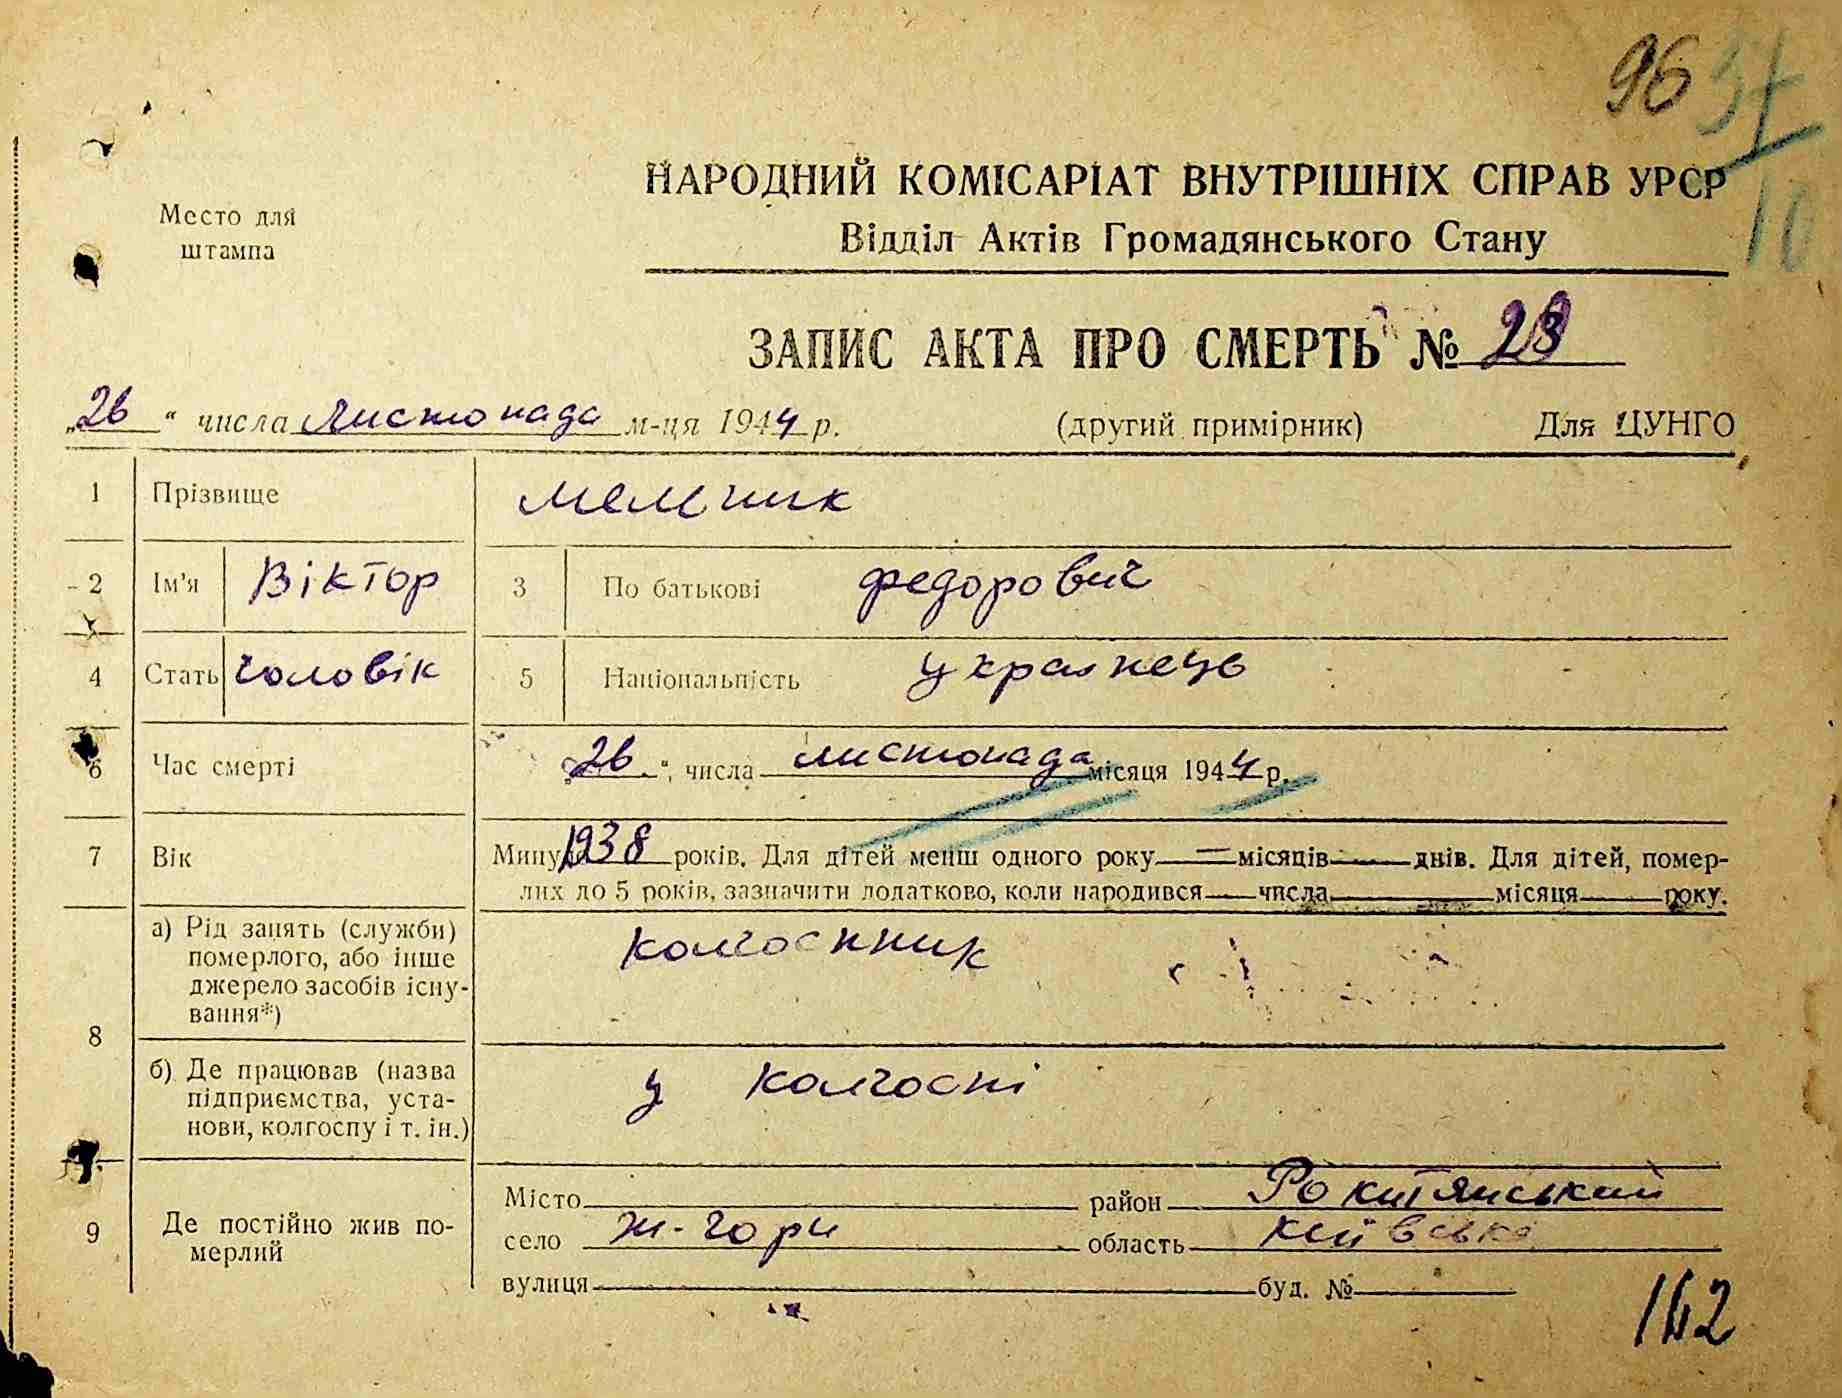 96 37
10
НАРОДНИЙ КОМІСАРІАТ ВНУТРІШНІХ СПРАВ УРСР
Место для
штампа
Відділ Актів Громадянського Стану
ЗАПИС АКТА ПРО СМЕРТЬ №
„26“ числа Листопада м-ця 1944 р. (другий примірник) Для ЦУНГО
1 Прізвище Мельник
2 Ім'я Віктор 3 По батькові Федорович
4 Стать чоловік 5 Національність українець
6 Час смерті „26“ числа листопада місяця 1944 р.
7 Вік Минуло 1938 років. Для дітей менш одного року — місяців — днів. Для дітей, помер-
лих до 5 років, зазначити додатково, коли народився — числа — місяця — року.
8 а) Рід занять (служби)
померлого, або інше
джерело засобів існу-
вання*)
колгоспник
б) Де працював (назва
підприємства, уста-
нови, колгоспу і т. ін.)
у колгоспі
9 Де постійно жив по-
мерлий
Місто район Рокитянський
село Ж-гори область Київська
вулиця буд. №
162